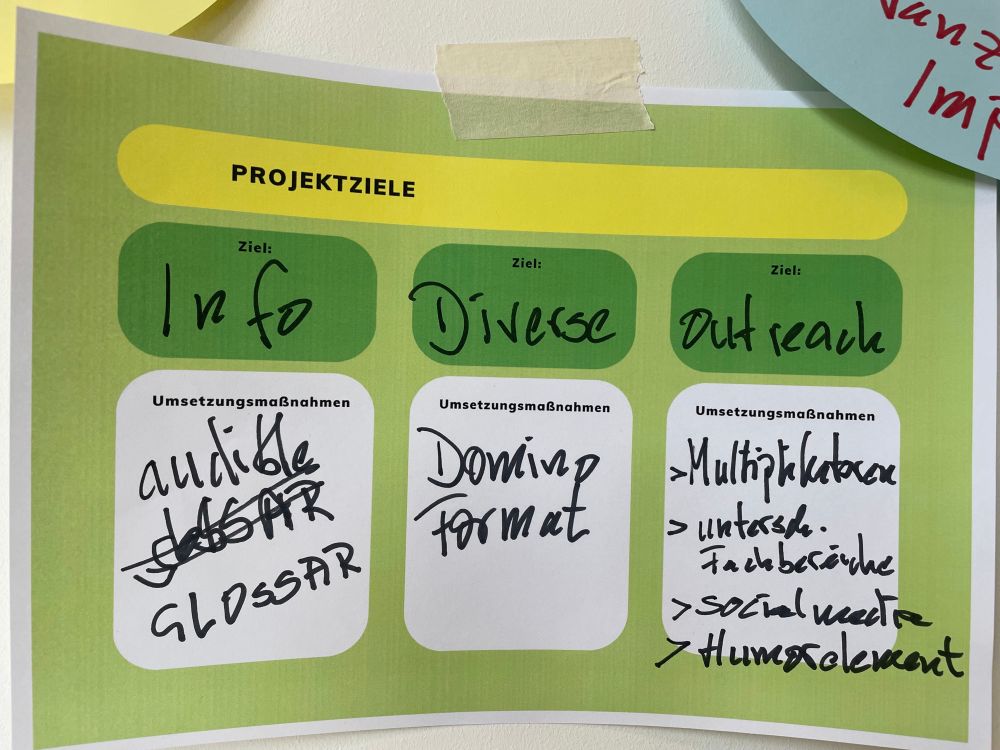 Imp
PROJEKTZIELE
Ziel:
Info
Umsetzungsmaßnahmen
audible
GLOSSAR
Ziel:
Diverse
Umsetzungsmaßnahmen
Domino
Format
Ziel:
outreach
Umsetzungsmaßnahmen
> Multiplikatoren
> untersch.
Fachbereiche
> social media
> Humorelement